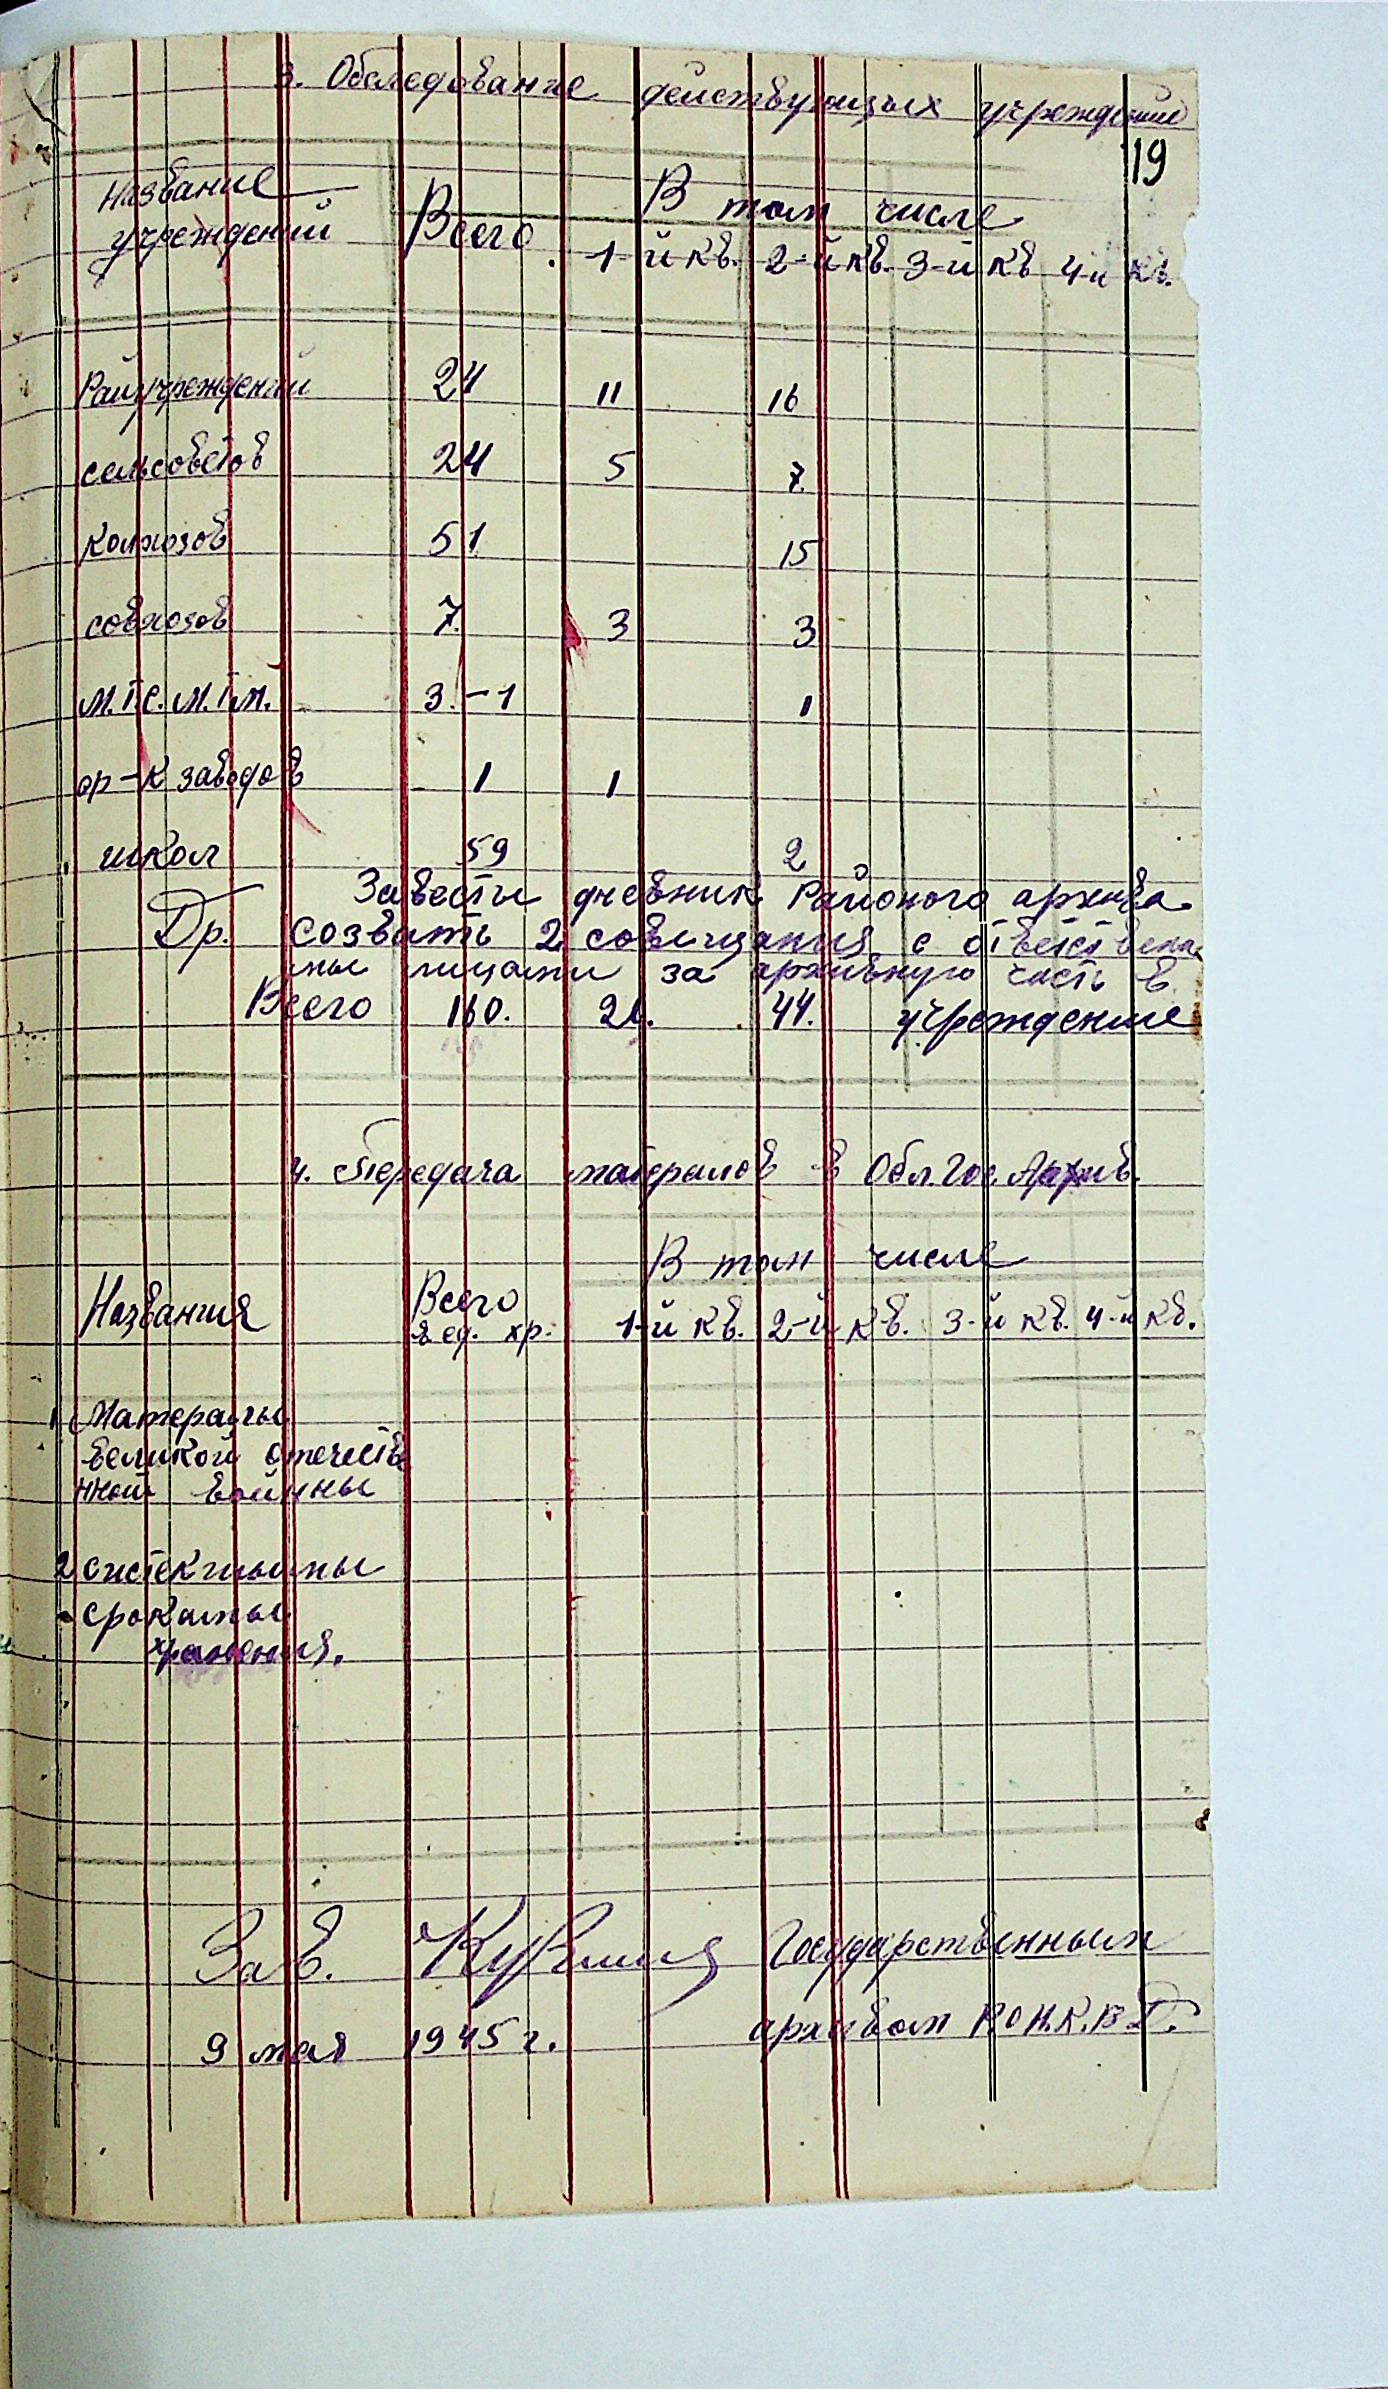 3. Обследование действующих учреждение
19
Название Всего В том числе
учреждений 1-й кв. 2-й кв. 3-й кв 4-й кв.
Райучреждений 24 11 16
сельсоветов 24 5 7.
колхозов 51 15
совхозов 7. 3 3
М.Т.С. М.Т.М. 3.-1 1
ор-к заводов 1 1
школ 59 2
Завести дневник Районого архива
Др. созвать 2 совещания с ответствена
ны лицами за архивную часть в
Всего 160. 44. учреждение
4. Передача матералов в Обл.Гос.Архив.
В том числе
Названия Всего
в ед. хр. 1-й кв. 2-й кв. 3-й кв. 4-й кв.
1. Матералы
великой отечеств
нной войнны
2 систекшыmы
срокамы
хранения.
Зав. Государственным
архивом Р.О Н.К.В.Д.
9 мая 1945 г.